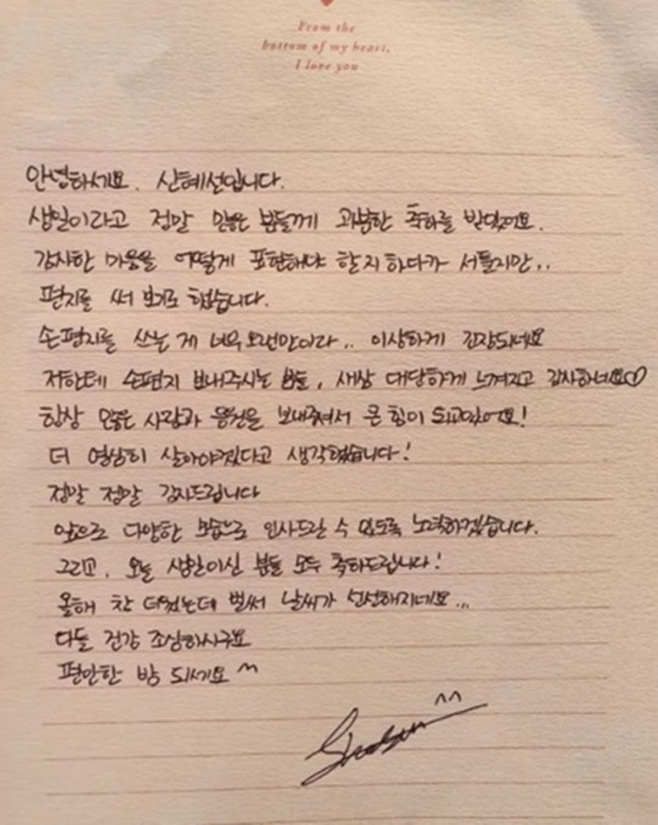 From the
bottom of my heart,
I love you
안녕하세요. 신혜선입니다.
생일이라고 정말 많은 분들께 과분한 축하를 받았어요.
감사한 마음을 어떻게 표현해야 할지 하다가 서툴지만..
편지를 써 보기로 했습니다.
손편지를 쓰는 게 너무 오랜만이라.. 이상하게 긴장되네요
저한테 손편지 보내주시는 분들, 새삼 대단하게 느껴지고 감사하네요♡
항상 많은 사랑과 응원을 보내주셔서 큰 힘이 되고있어요!
더 열심히 살아야겠다고 생각했습니다!
정말 정말 감사드립니다
앞으로 다양한 모습으로 인사드릴 수 있도록 노력하겠습니다.
그리고, 오늘 생일이신 분들 모두 축하드립니다!
올해 참 더웠는데 벌써 날씨가 선선해지네요...
다들 건강 조심하시구요
편안한 밤 되세요 ^^
^^